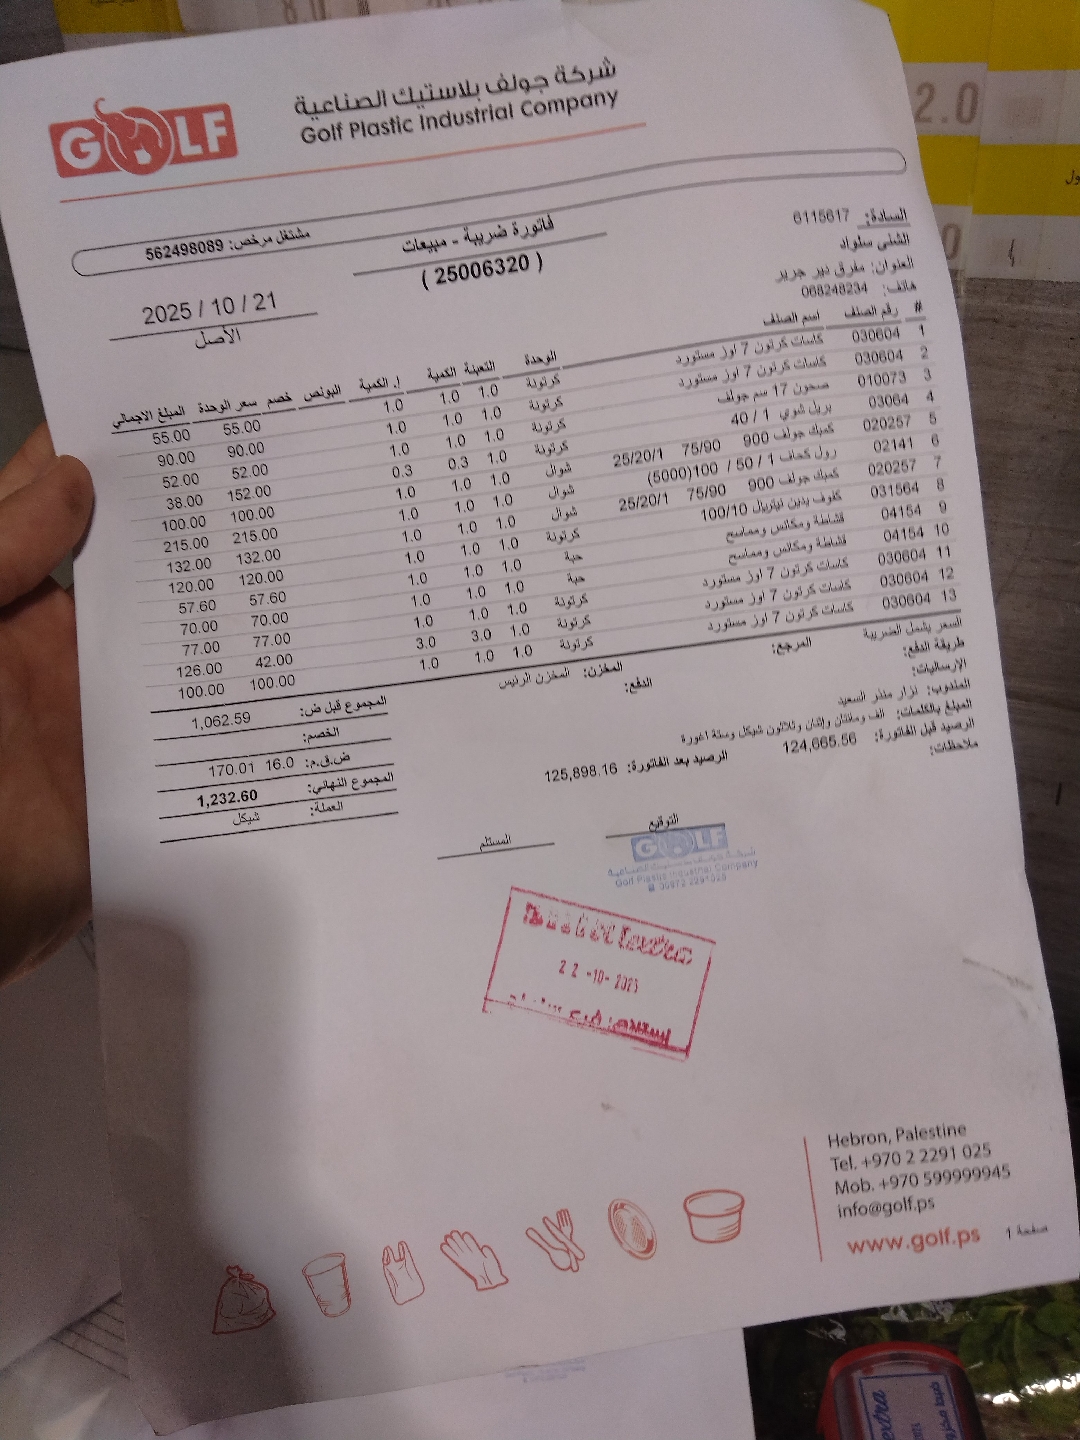 GOLF
شركة جولف بلاستيك الصناعية
Golf Plastic Industrial Company
مشتغل مرخص: 562498089
فاتورة ضريبة - مبيعات
( 25006320 )
2025 / 10 / 21
الأصل
السادة: 6115617
الشني سلواد
العنوان: مفرق دير جرير
هاتف: 068248234
# رقم الصنف اسم الصنف الوحدة التعبئة الكمية إ. الكمية البونص خصم سعر الوحدة المبلغ الاجمالي
1 030604 كاسات كرتون 7 اوز مستورد كرتونة 1.0 1.0 1.0 55.00 55.00
2 030604 كاسات كرتون 7 اوز مستورد كرتونة 1.0 1.0 1.0 90.00 90.00
3 010073 صحون 17 سم جولف كرتونة 1.0 1.0 1.0 52.00 52.00
4 03064 40 / 1 شوال 1.0 0.3 0.3 152.00 38.00
5 020257 كمبك جولف 900 75/90 25/20/1 شوال 1.0 1.0 1.0 100.00 100.00
6 02141 رول 1 / 50 / 100(5000) شوال 1.0 1.0 1.0 215.00 215.00
7 020257 كمبك جولف 900 75/90 25/20/1 كرتونة 1.0 1.0 1.0 132.00 132.00
8 031564 كفوف 100/10 حبة 1.0 1.0 1.0 120.00 120.00
9 04154 قشاطة ومكانس ومماسح حبة 1.0 1.0 1.0 57.60 57.60
10 04154 قشاطة ومكانس ومماسح كرتونة 1.0 1.0 1.0 70.00 70.00
11 030604 كاسات كرتون 7 اوز مستورد كرتونة 1.0 1.0 1.0 77.00 77.00
12 030604 كاسات كرتون 7 اوز مستورد كرتونة 1.0 3.0 3.0 42.00 126.00
13 030604 كاسات كرتون 7 اوز مستورد 1.0 1.0 1.0 100.00 100.00
السعر يشمل الضريبة
طريقة الدفع:
المرجع:
المخزن: المخزن الرئيس
الدفع:
الارساليات:
المندوب: نزار منذر السعيد
المبلغ بالكلمات: الف ومائتان وإثنان وثلاثون شيكل وستة اغورة
الرصيد قبل الفاتورة: 124,665.56
الرصيد بعد الفاتورة: 125,898.16
ملاحظات:
المجموع قبل ض: 1,062.59
الخصم:
ض.ق.م: 16.0 170.01
المجموع النهائي: 1,232.60
العملة: شيكل
التوقيع
المستلم
GOLF
Golf Plastic Industrial Company
22 -10- 2025
Hebron, Palestine
Tel. +970 2 2291 025
Mob. +970 599999945
info@golf.ps
www.golf.ps
صفحة 1
2.0
extra